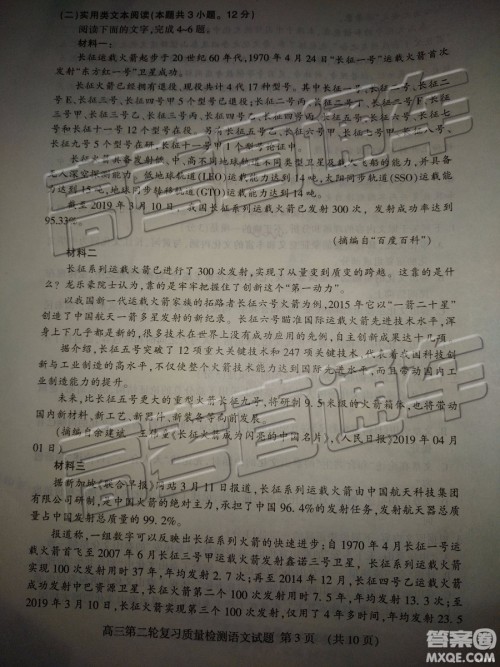 (二)实用类文本阅读(本题共3小题。12分)
阅读下面的文字,完成4-6题。
材料一:
长征运载火箭起步于20世纪60年代,1970年4月24日“长征一号”运载火箭首次
发射“东方红一号”卫星成功。
长征火箭已经拥有退役、现役共计4代17种型号。其中长征一号、长征二号、长征二
号E、长征三号、长征四号甲5个型号已退役;长征二号丙、长征二号丁、长征二号F、长
征三号甲、长征三号乙、长征三号丙、长征四号乙、长征四号丙、长征五号、长征六号、长征七
号和长征十一号12个型号在役。另有长征六号甲、长征七号甲、长征八号、
长征九号5个型号在研,长征十一号甲1个型号论证中。
长征火箭具备发射低、中、高不同地球轨道不同类型卫星及载人飞船的能力,并具备
无人深空探测能力。低地球轨道(LEO)运载能力达到14吨,太阳同步轨道(SSO)运载能
力达到15吨,地球同步转移轨道(GTO)运载能力达到14吨。
截至2019年3月10日,我国长征系列运载火箭已发射300次,发射成功率达到
95.33%。
(摘编自“百度百科”)
材料二
长征系列运载火箭已进行了300次发射,实现了从量变到质变的跨越。这靠的是什
么?龙乐豪院士认为,靠的是牢牢把握住了创新这个“第一动力”。
以我国新一代运载火箭家族的拓路者长征六号火箭为例,2015年它以“一箭二十星”
创造了中国航天一箭多星发射的新纪录。长征六号瞄准国际运载火箭先进技术水平,浑
身上下几乎都是新的,很多技术在世界上没有成功应用的先例,自主创新成果达十几项。
据介绍,长征五号突破了12项重大关键技术和247项关键技术,代表着我国科技创
新与工业制造的高水平,不仅使长征火箭整体技术能力达到国际先进水平,而且带动国内工
业制造能力的提升。
未来,比长征五号更大的重型火箭长征九号,将研制9.5米级的火箭箱体,也将带动
国内新材料、新工艺、新器件、新装备等高新发展。
(摘编自余建斌 《长征火箭成为闪亮的中国名片》,《人民日报》2019年04月
01日)
材料三
据新加坡《联合早报》网站3月11日报道,长征系列运载火箭由中国航天科技集团
有限公司研制,是中国火箭的绝对主力,承担了中国96.4%的发射任务,发射航天器总质
量占中国发射总质量的99.2%。
报道称,一组数字可以反映出长征系列火箭的快速进步:自1970年4月长征一号运
载火箭首飞至2007年6月长征三号甲运载火箭发射鑫诺三号卫星,长征系列火箭实现
100次发射用时37年,年均发射2.7次;再至2014年12月,长征四号乙运载火箭发射
成功发射中巴资源卫星,长征火箭实现第二个100次发射,用时7.5年,年均发射13.3次;至
2019年3月10日,长征火箭实现第三个100次发射,仅用了4年多时间,年均发射23.5
高三第二轮复习质量检测语文试题 第3页 (共10页)
高考直通车
高考直通车
答案圈
MXQE.COM